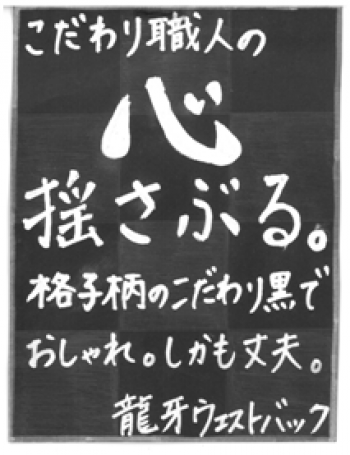 こだわり職人の
心
揺さぶる。
格子柄のこだわり黒で
おしゃれ。しかも丈夫。
龍牙ウエストバック